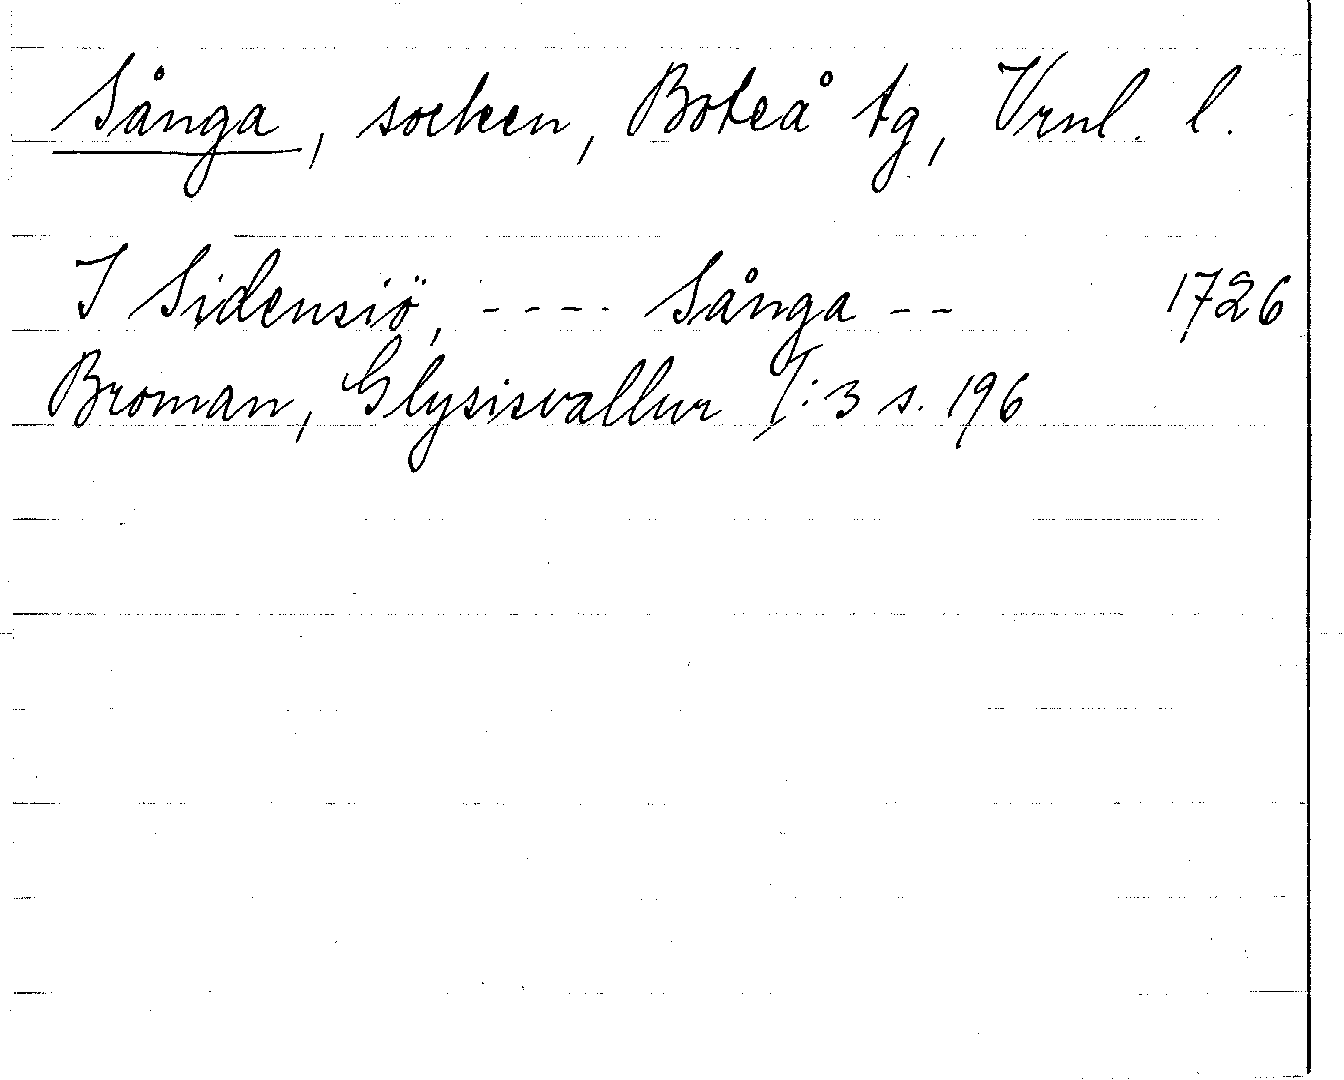 Sånga, socken, Boteå tg, Vrnl. l.
I Sidensiö, ---- Sånga -- 1726
Broman, Glysisvallur I:3 s. 196